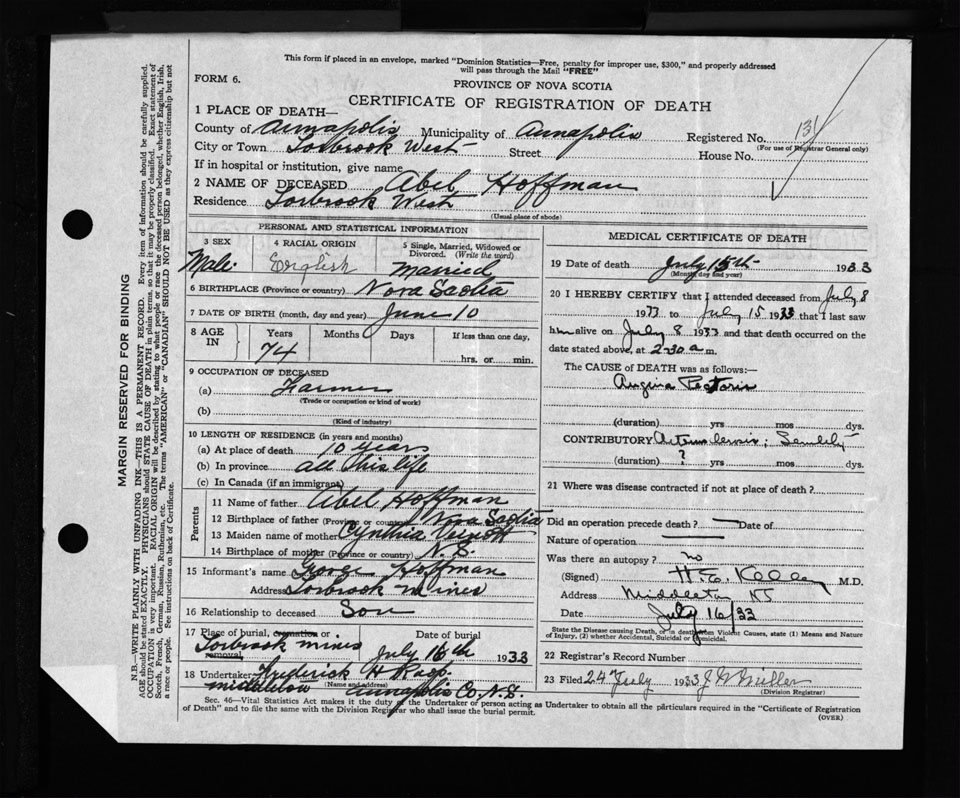 This form if placed in an envelope, marked "Dominion Statistics—Free, penalty for improper use, $300," and properly addressed
will pass through the Mail "FREE"
FORM 6.
PROVINCE OF NOVA SCOTIA
CERTIFICATE OF REGISTRATION OF DEATH
1 PLACE OF DEATH—
County of Annapolis Municipality of Annapolis Registered No. 131
(For use of Registrar General only)
City or Town Torbrook West Street House No.
If in hospital or institution, give name
2 NAME OF DECEASED Abel Hoffman
Residence Torbrook West
(Usual place of abode)
PERSONAL AND STATISTICAL INFORMATION
3 SEX 4 RACIAL ORIGIN 5 Single, Married, Widowed or
Divorced. (Write the word)
Male English Married
6 BIRTHPLACE (Province or country) Nova Scotia
7 DATE OF BIRTH (month, day and year) June 10
8 AGE IN Years Months Days If less than one day,
74 hrs. or min.
9 OCCUPATION OF DECEASED
(a) Farmer
(Trade or occupation or kind of work)
(b)
(Kind of industry)
10 LENGTH OF RESIDENCE (in years and months)
(a) At place of death 10 years
(b) In province all his life
(c) In Canada (if an immigrant)
Parents
11 Name of father Abel Hoffman
12 Birthplace of father (Province or country) Nova Scotia
13 Maiden name of mother Cynthia Veinott
14 Birthplace of mother (Province or country) N. S.
15 Informant's name George Hoffman
Address Torbrook mines
16 Relationship to deceased Son
17 Place of burial, cremation or removal Date of burial
Torbrook mines July 16th 1933
18 Undertaker Frederick H
(Name and address)
middleton Annapolis Co. N. S.
MEDICAL CERTIFICATE OF DEATH
19 Date of death July 15th 1933
(Month, day and year)
20 I HEREBY CERTIFY that I attended deceased from July 8
1933 to July 15 1933 that I last saw
him alive on July 8 1933 and that death occurred on
the date stated above, at 2-30 a m.
The CAUSE of DEATH was as follows:—
Angina Pectoris
(duration) yrs mos dys.
CONTRIBUTORY ; Senility
(duration) ? yrs. mos dys.
21 Where was disease contracted if not at place of death?
Did an operation precede death? — Date of
Nature of operation
Was there an autopsy? no
(Signed) H E Kelley M.D.
Address Middleton NS
Date July 16/33
State the Disease causing Death, or in deaths from Violent Causes, state (1) Means and Nature
of Injury, (2) whether Accidental, Suicidal or Homicidal.
22 Registrar's Record Number
23 Filed 24 July 1933 J W Miller
(Division Registrar)
Sec. 46—Vital Statistics Act makes it the duty of the Undertaker or person acting as Undertaker to obtain all the particulars required in the "Certificate of Registration
of Death" and to file the same with the Division Registrar who shall issue the burial permit.
(OVER)
MARGIN RESERVED FOR BINDING
N.B.—WRITE PLAINLY WITH UNFADING INK—THIS IS A PERMANENT RECORD. Every item of information should be carefully supplied.
AGE should be stated EXACTLY. PHYSICIANS should STATE CAUSE OF DEATH in plain terms, so that it may be properly classified. Exact statement of
OCCUPATION is very important. RACIAL ORIGIN will be described by stating to what people or race the deceased person belonged, whether English, Irish,
Scotch, French, German, Russian, Ruthenian, etc. The terms "AMERICAN" or "CANADIAN" SHOULD NOT BE USED as they express citizenship but not
a race or people. See instructions on back of Certificate.